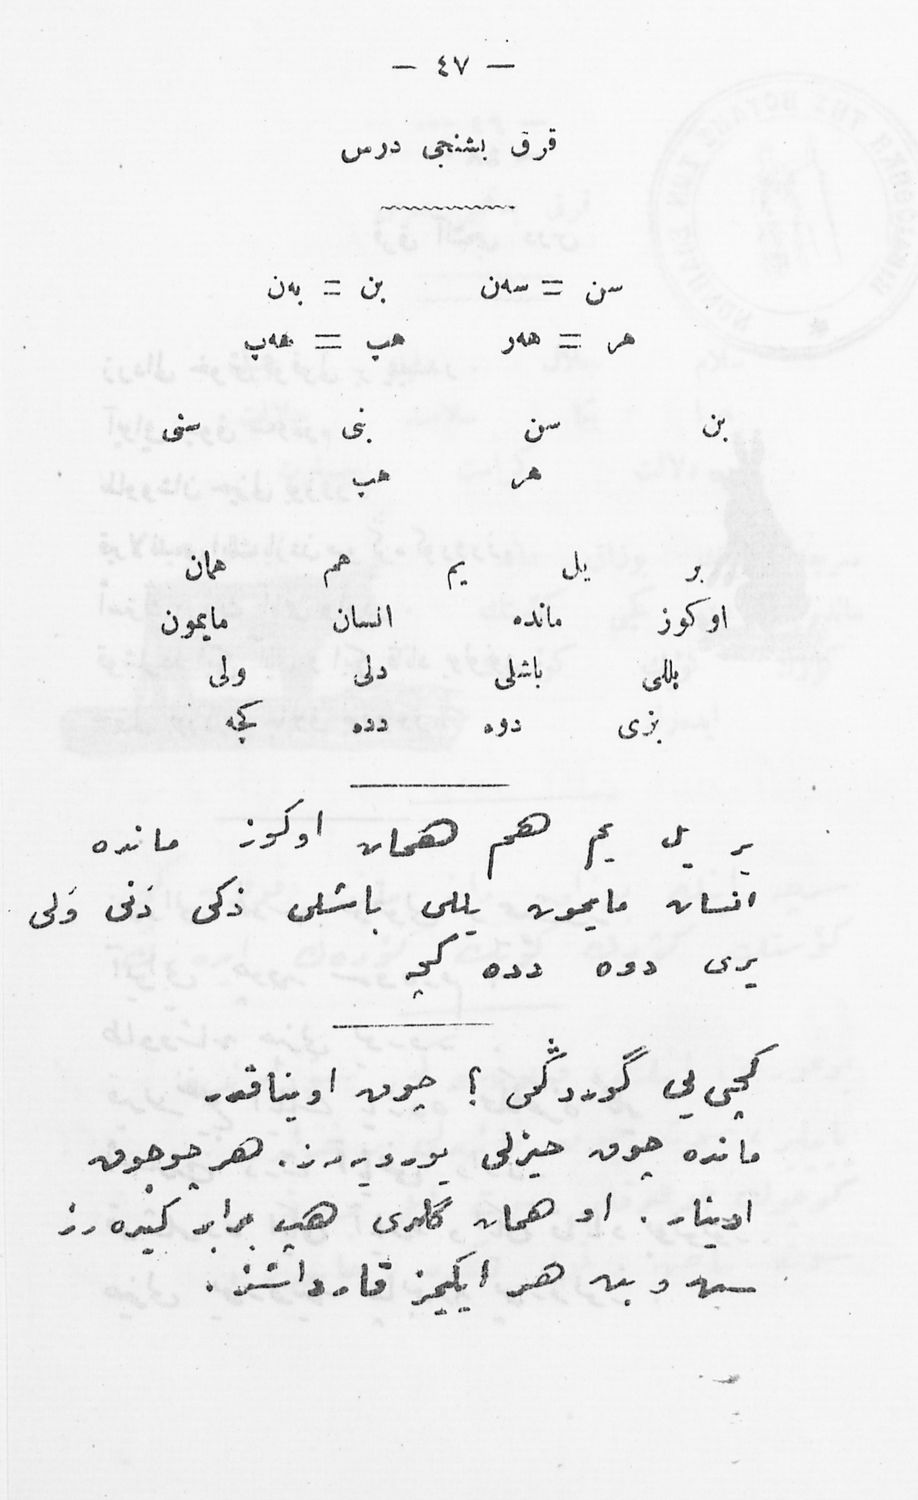 — ٤٧ —
قرق بشنجی درس
سن = سەن بن = بەن
هر = هەر هپ = هەپ
بن سن بنی سنی
هر هپ
بر یل یم هم همان
اوكوز مانده انسان مایمون
بللی باشلی دلی ولی
بزی دوه دده كچه
بر یل یم هم همان اوكوز مانده
انسان مایمون یللی باشلی ذكی دنی ولی
یری دوه دده كچه
كچی یی گوردڭمی ؟ چوق اویناقدر
مانده چوق حیزلی یورویەرز. هر چوجوق
اوینار . او همان گلدی هپ برابر كیدەرز
سن و بن هر ایكیمز قارداشز .